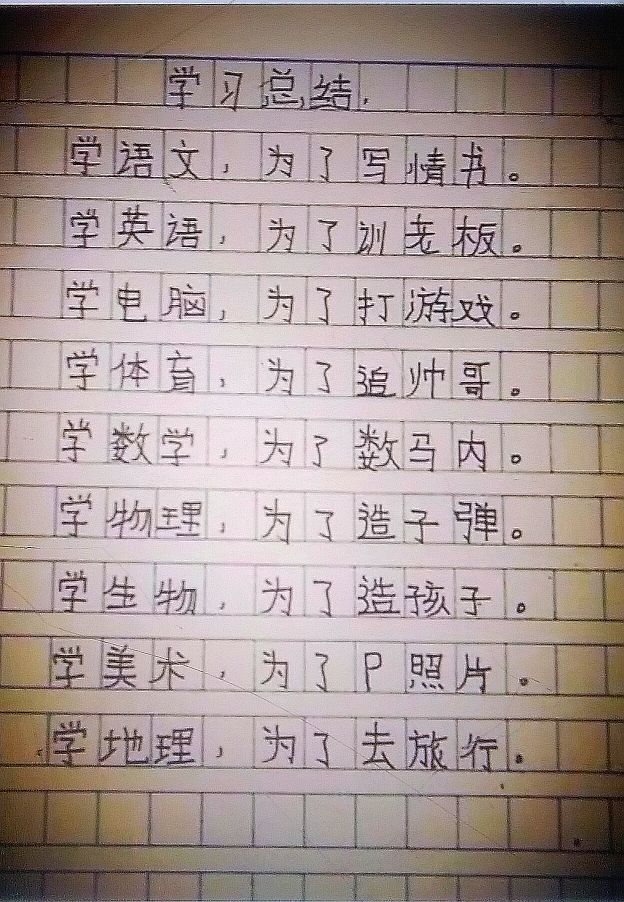 学习总结.
学语文，为了写情书。
学英语，为了训老板。
学电脑，为了打游戏。
学体育，为了追帅哥。
学数学，为了数马内。
学物理，为了造子弹。
学生物，为了造孩子。
学美术，为了P照片。
学地理，为了去旅行。